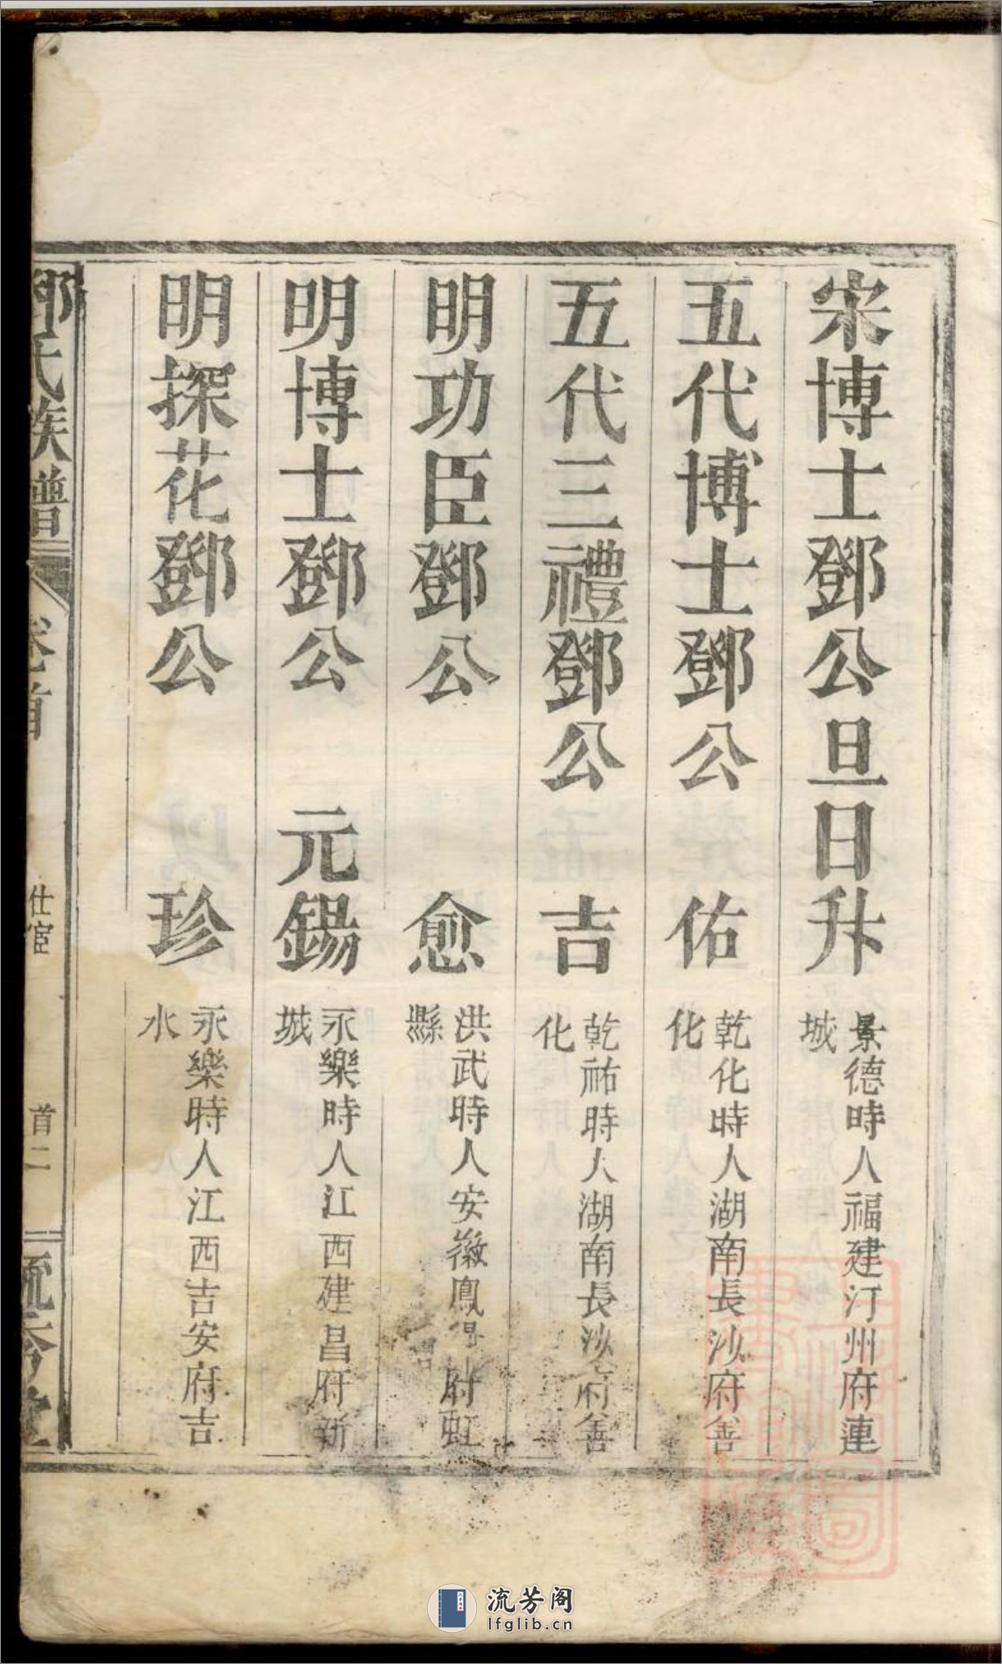 宋博士鄧公旦日升
景德時人福建汀州府連
城
五代博士鄧公佑
乾化時人湖南長沙府善
化
五代三禮鄧公吉
乾祐時人湖南長沙府善
化
明功臣鄧公愈
洪武時人安徽鳳陽府虹
縣
明博士鄧公元錫
永樂時人江西建昌府新
城
明探花鄧公珍
永樂時人江西吉安府吉
水
鄧氏族譜
卷首
仕宦
首二
流芳阁
lfglib.cn